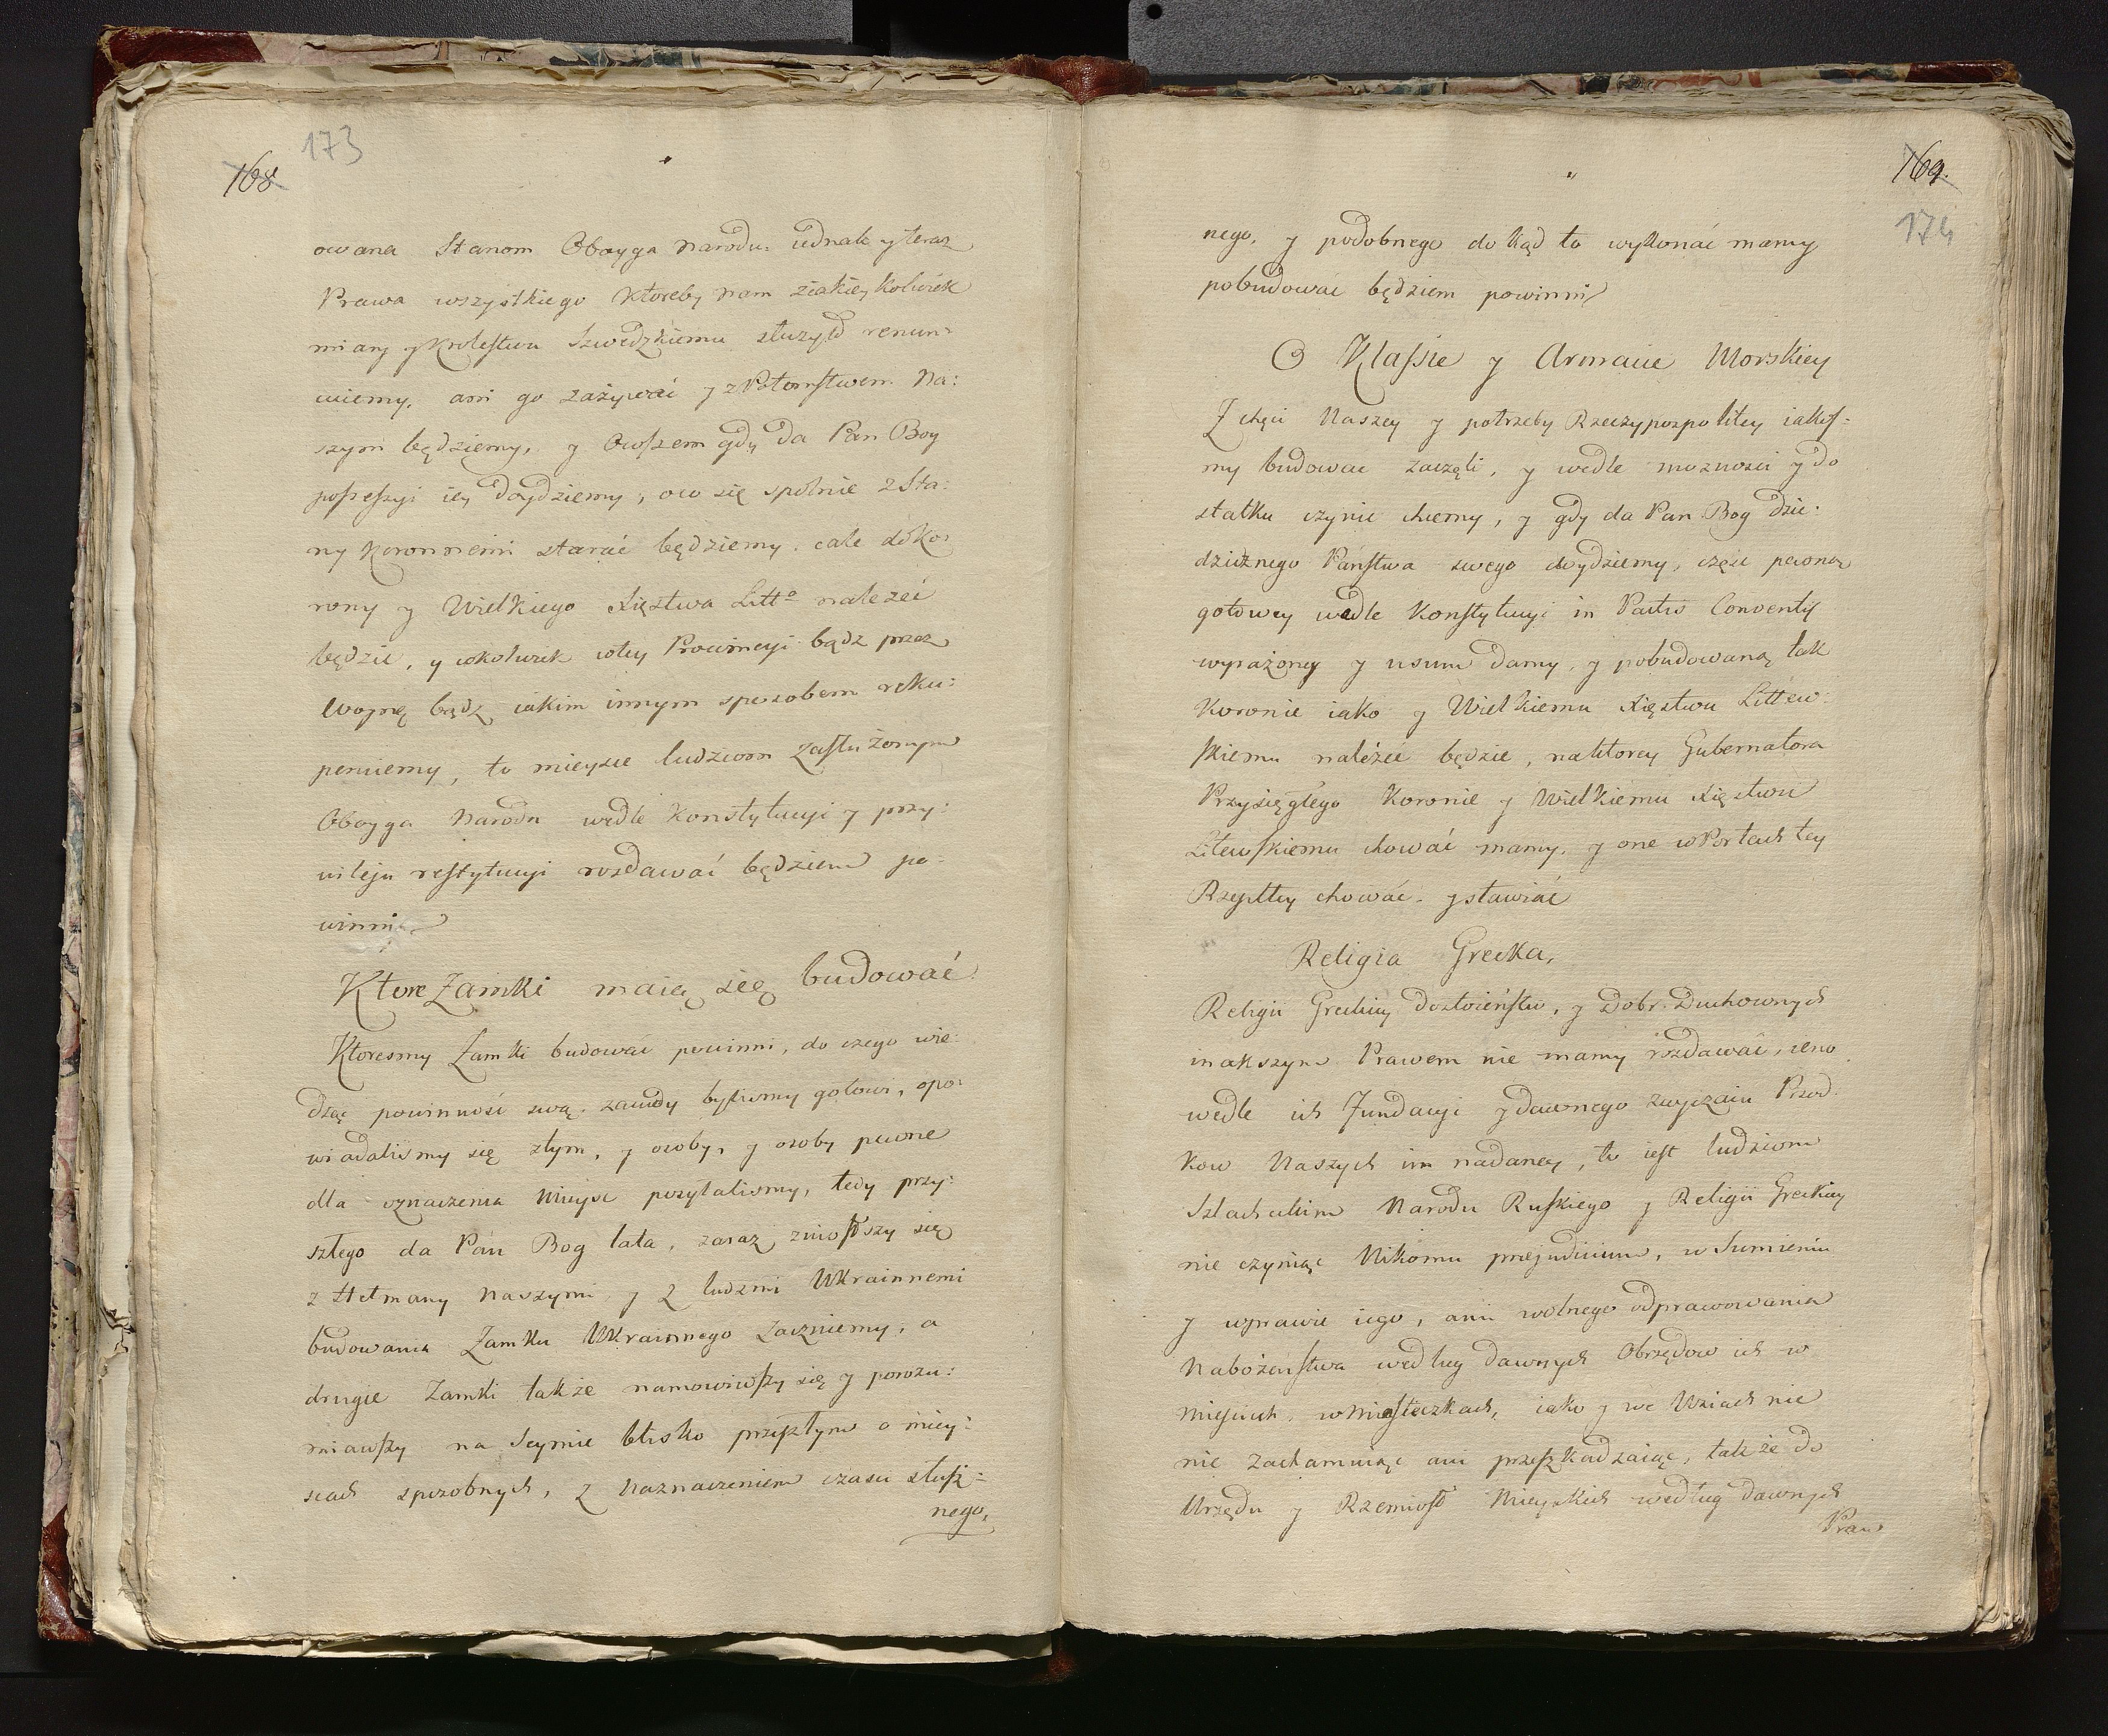 173
168
owana Stanom Oboyga Narodu. iednak y teraz
Prawa wszystkiego ktoreby nam ziakieykolwiek
miary y Krolestwu Szwedzkiemu służyło renun:
ciiemy, ani go zażywać y z Potomstwem Na:
szym będziemy, y Owszem gdy da Pan Bog
possessyi iey doydziemy, ow się spolnie z Sta:
ny koronnemi starać będziemy. cale do Ko:
rony y Wielkiego Xięstwa Litto należeć
będzie, y cokolwiek wtey Prowincyi bądz przez
Woynę bądz iakim innym sposobem reku:
peruiemy, to mieysce ludziom zasłużonym
Oboyga Narodu wedle Konstytucyi y przy:
wileju restytucyi rozdawać będziem po:
winni
Ktore Zamki maią się budować
Ktoresmy Zamki budować powinni, do czego wie:
dząc powinność swą. zawdy bylismy gotowi, opo:
wiadalismy się ztym, y osoby, y osoby pewne
dla oznaczenia Mieysc pozytalismy, tedy przy:
szłego da Pan Bog lata, zaraz zniosszy się
z Hetmany Naszymi y z ludzmi Ukrainnemi
budowania Zamku Ukrainnego zaczniemy, a
drugie Zamki także namowiwszy się y porozu:
miawszy na Seymie blisko przyszłym o miey:
scach sposobnych, z Naznaczeniem czasu słusz:
nego,
169.
174
nego, y podobnego dokąd to wykonać mamy
pobudować będziem powinni
O Klassie y Armacie Morskiey
Z chęci Naszey y potrzeby Rzeczypospolitey iakos:
my budować zaczęli, y wedle moznosci y do
statku czynić chcemy, y gdy da Pan Bog dzie:
dzicznego Państwa swego doydziemy, częśc pewną
gotowey wedle Konstytucyi in Pactis Conventis
wyrażoney y usum damy, y pobudowaną tak
Koronie iako y Wielkiemu Xięstwu Littew:
skiemu należeć będzie, naktorey Gubernatora
Przysięgłego Koronie y Wielkiemu Xięstwu
Litewskiemu chować mamy, y one wPortach tey
Rzepltey chować. y stawiać
Religia Grecka,
Religii Greckiey Dostoieństw, y Dobr Duchownych
inakszym Prawem nie mamy rozdawać, ieno
wedle ich Fundacyi y dawnego zwyczaiu Przod:
kow Naszych im nadaney, to iest ludziom
Szlacheckim Narodu Ruskiego y Religii Greckiey
nie czyniąc Nikomu praejudicium, w Sumieniu
y wprawie iego, ani wolnego odprawowania
Nabożeństwa według dawnych Obrzędow ich w
Mieściech, w Miasteczkach, iako y we Wsiach nie
nie zachamuiąc ani przeszkadzaiąc, także do
Urzędu y Rzemiosł Mieyskich według dawnych
Praw